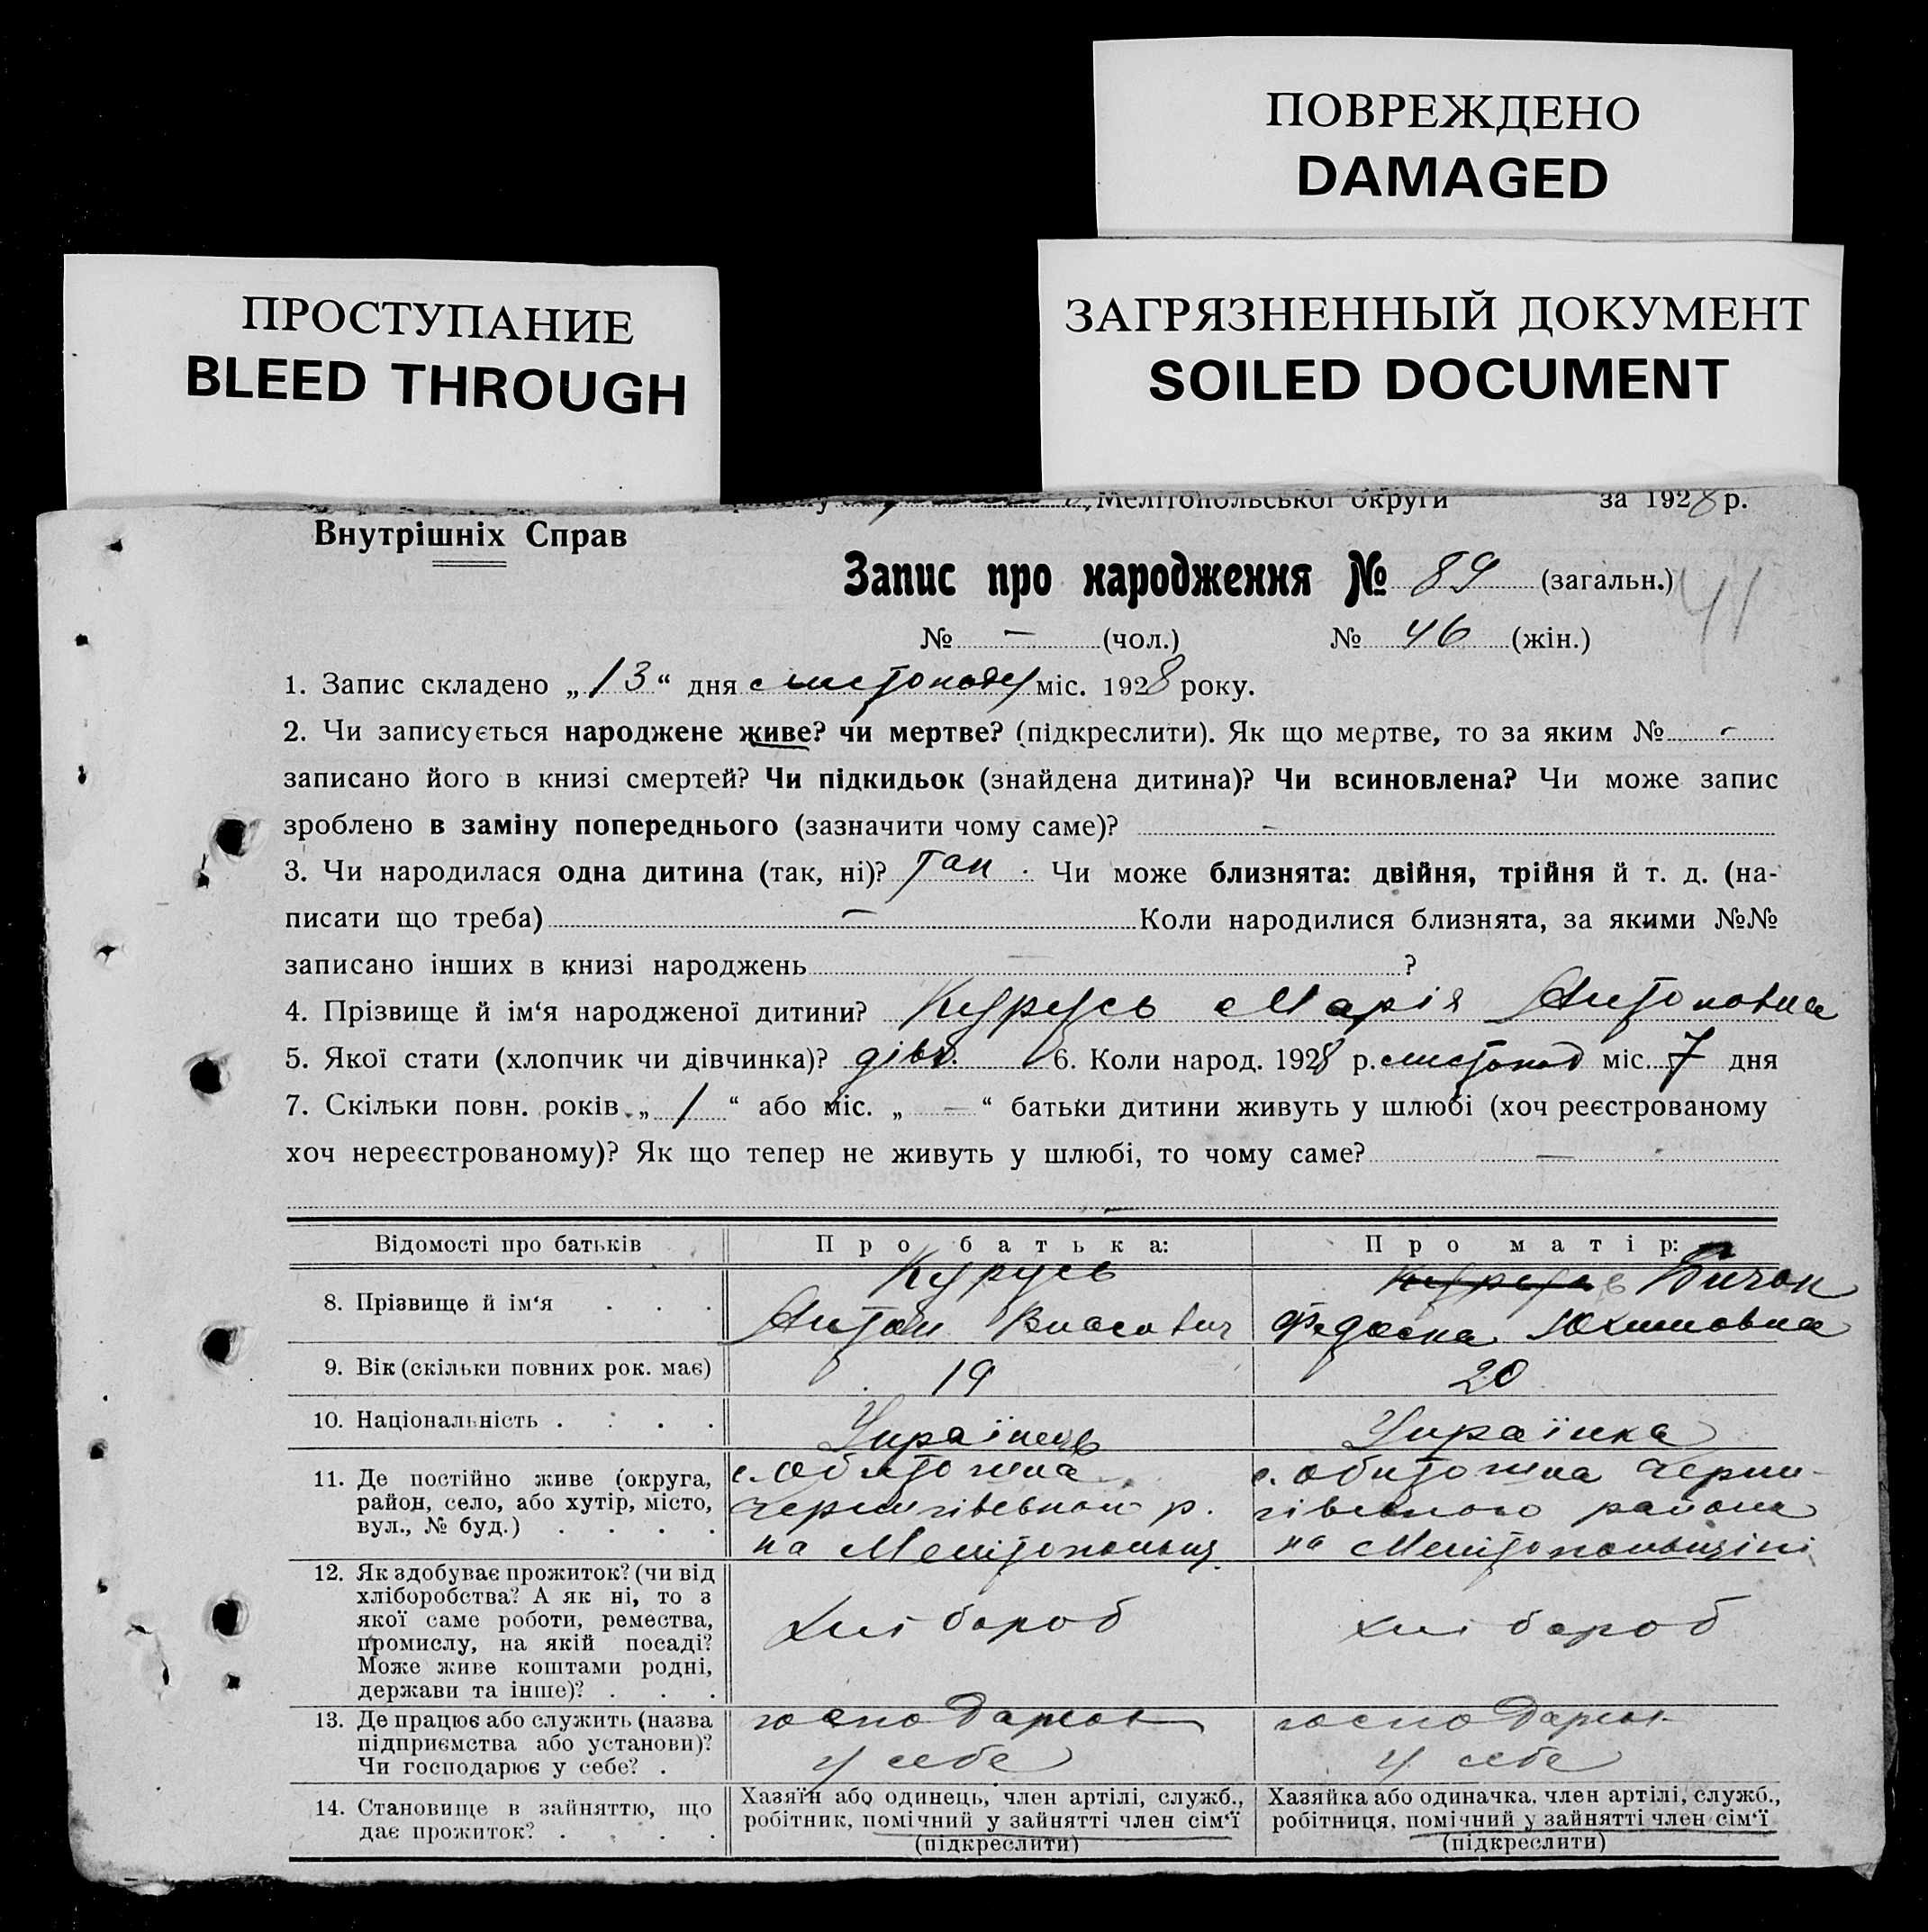 ПОВРЕЖДЕНО
DAMAGED
ПРОСТУПАНИЕ
BLEED THROUGH
ЗАГРЯЗНЕННЫЙ ДОКУМЕНТ
SOILED DOCUMENT
Мелітопольської округи за 1928 р.
Внутрішніх Справ
Запис про народження № 89 (загальн.) 41
№ — (чол.) № 46 (жін.)
1. Запис складено „13“ дня листопаду міс. 1928 року.
2. Чи записується народжене живе? чи мертве? (підкреслити). Як що мертве, то за яким № -
записано його в книзі смертей? Чи підкидьок (знайдена дитина)? Чи всиновлена? Чи може запис
зроблено в заміну попереднього (зазначити чому саме)? -
3. Чи народилася одна дитина (так, ні)? так. Чи може близнята: двійня, трійня й т. д. (на-
писати що треба) — Коли народилися близнята, за якими №№
записано інших в книзі народжень ?
4. Прізвище й ім‘я народженої дитини? Курусь Марія Антоновна
5. Якої стати (хлопчик чи дівчинка)? дівч. 6. Коли народ. 1928 р. листопад міс. 7 дня
7. Скільки повн. років „1“ або міс. „—“ батьки дитини живуть у шлюбі (хоч реєстрованому
хоч нереєстрованому)? Як що тепер не живуть у шлюбі, то чому саме? —
Відомості про батьків Про батька: Про матір:
8. Прізвище й ім‘я . . . Курусь Бичок
Антон Власович Федоска Юхимовна
9. Вік (скільки повних рок. має) 19 20
10. Національність . . . . Українець Українка
11. Де постійно живе (округа, район, село, або хутір, місто, вул., № буд.) . . . .
с. Обиточна
Чернигівського р.
на Мелітопольщ.
с. Обиточна Черни-
гівського района
на Мелітопольщіні
12. Як здобуває прожиток? (чи від
хліборобства? А як ні, то з
якої саме роботи, ремества,
промислу, на якій посаді?
Може живе коштами родні,
держави та інше)? . . .
хлібороб хлібороб
13. Де працює або служить (назва
підприємства або установи)?
Чи господарює у себе? .
у себе у себе
14. Становище в зайняттю, що
дає прожиток? . . . .
Хазяїн або одинець, член артілі, служб.,
робітник, помічний у зайнятті член сім‘ї
(підкреслити)
Хазяйка або одиначка, член артілі, служб.,
робітниця, помічний у зайнятті член сім‘ї
(підкреслити)